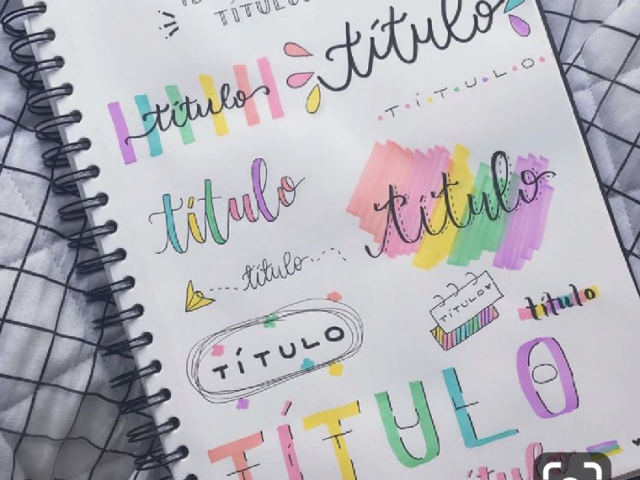 TÍTULO
título
título
T·Í·T·U·L·O
título
título
título
TÍTULO
título
TÍTULO
TÍTULO
título